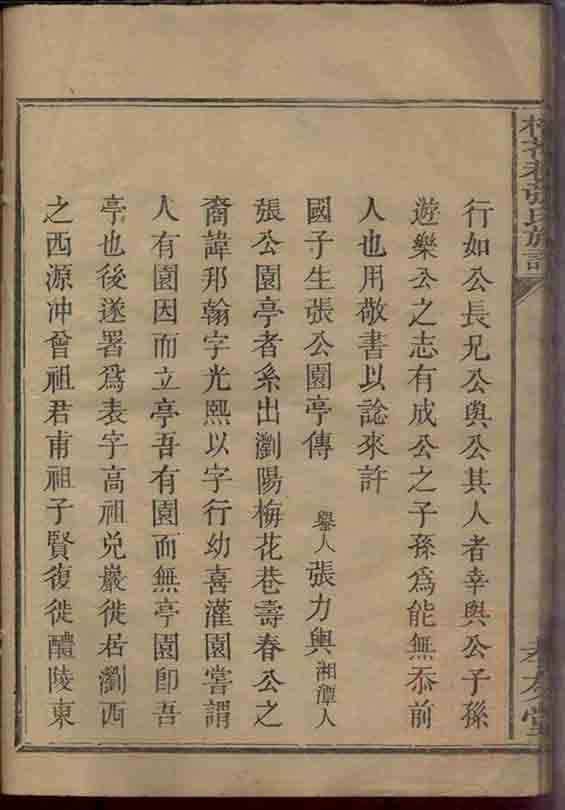 梅花巷張氏族譜
孝友堂
行如公長兄公與公其人者幸與公子孫
遊樂公之志有成公之子孫為能無忝前
人也用敬書以諗來許
國子生張公園亭傳 舉人張力輿湘潭人
張公園亭者系出瀏陽梅花巷壽春公之
裔諱邦翰字光熙以字行幼喜灌園嘗謂
人有園因而立亭吾有園而無亭園即吾
亭也後遂署為表字高祖兌巖徙居瀏西
之西源冲曾祖君甫祖子賢復徙醴陵東